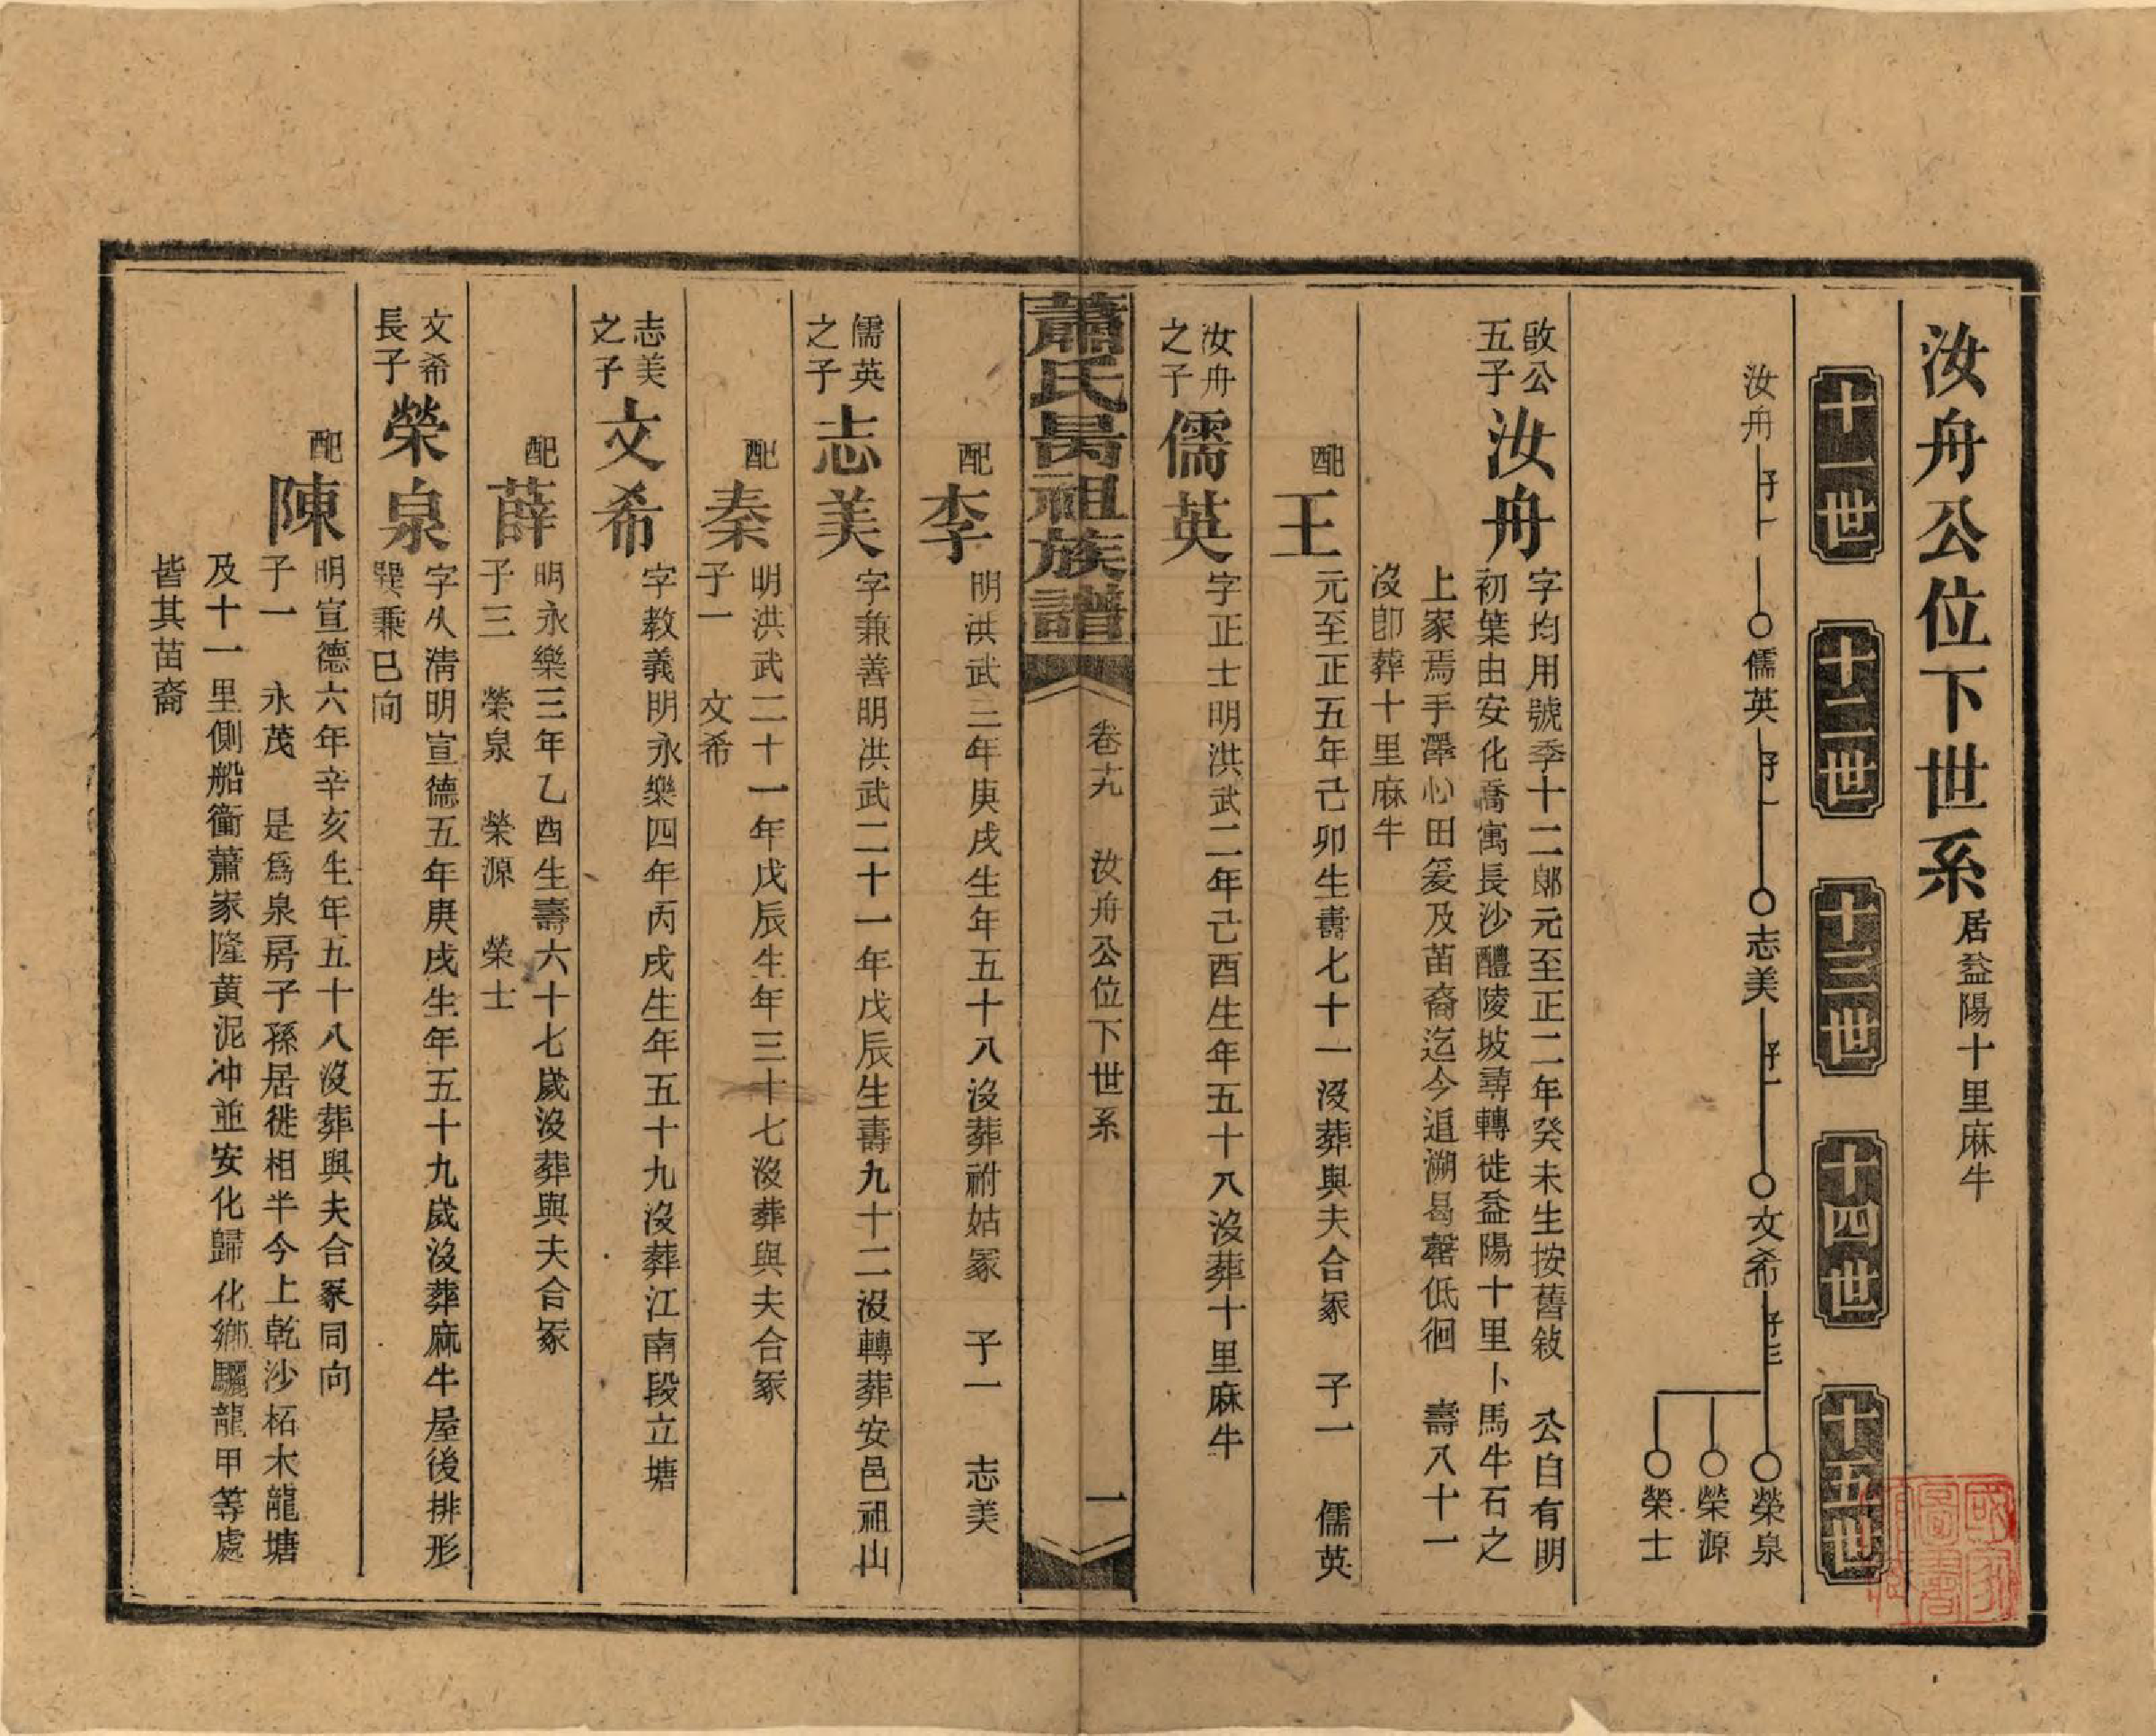 汝舟公位下世系 居益陽十里麻牛
十一世
十二世
十三世
十四世
十五世
汝舟 子一 儒英 子一 志美 子一 文希 子三 榮泉
榮源
榮士
啟公五子 汝舟 字均用號季十二郞元至正二年癸未生按舊敍 公自有明
初葉由安化喬寓長沙醴陵坡尋轉徙益陽十里卜馬牛石之
上家焉手澤心田爰及苗裔迄今追溯曷罄低徊 壽八十一
沒卽葬十里麻牛
配 王 元至正五年己卯生壽七十一沒葬與夫合冢 子一 儒英
汝舟之子 儒英 字正士明洪武二年己酉生年五十八沒葬十里麻牛
蕭氏昺祖族譜 卷十九 汝舟公位下世系 一
配 李 明洪武三年庚戌生年五十八沒葬祔姑冢 子一 志美
儒英之子 志美 字兼善明洪武二十一年戊辰生壽九十二沒轉葬安邑祖山
配 秦 明洪武二十一年戊辰生年三十七沒葬與夫合冢
子一 文希
志美之子 文希 字教義明永樂四年丙戌生年五十九沒葬江南段立塘
配 薛 明永樂三年乙酉生壽六十七歲沒葬與夫合冢
子三 榮泉 榮源 榮士
文希長子 榮泉 字久淸明宣德五年庚戌生年五十九歲沒葬麻牛屋後排形
巽乘巳向
配 陳 明宣德六年辛亥生年五十八沒葬與夫合冢同向
子一 永茂 是爲泉房子孫居徙相半今上乾沙柘木龍塘
及十一里側船衝蕭家隆黄泥冲並安化歸化鄉驪龍甲等處
皆其苗裔